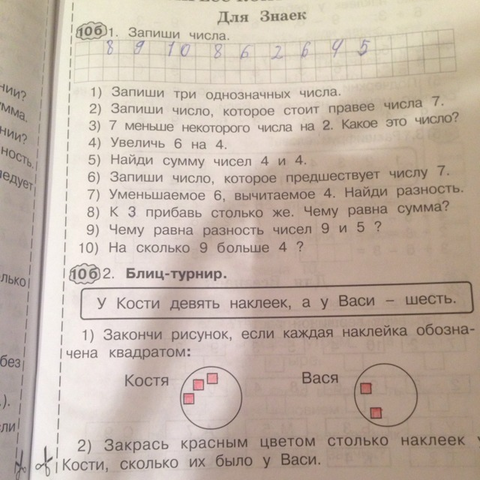 Для Знаек
10б 1. Запиши числа.
8 9 10 8 6 2 6 4 5
1) Запиши три однозначных числа.
2) Запиши число, которое стоит правее числа 7.
3) 7 меньше некоторого числа на 2. Какое это число?
4) Увеличь 6 на 4.
5) Найди сумму чисел 4 и 4.
6) Запиши число, которое предшествует числу 7.
7) Уменьшаемое 6, вычитаемое 4. Найди разность.
8) К 3 прибавь столько же. Чему равна сумма?
9) Чему равна разность чисел 9 и 5 ?
10) На сколько 9 больше 4 ?
10б 2. Блиц-турнир.
У Кости девять наклеек, а у Васи – шесть.
1) Закончи рисунок, если каждая наклейка обозна-
чена квадратом:
Костя Вася
2) Закрась красным цветом столько наклеек у
Кости, сколько их было у Васи.